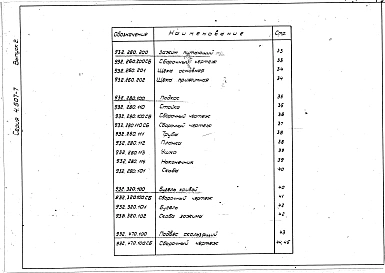 Обозначение Наименование Стр.
932.260.200 Зажим питающий 33
932.260.200СБ Сборочный чертеж 33
932.260.201 Щека основная 34
932.260.202 Щека прижимная 34
932.280.100 Подкос 35
932.280.110 Стойка 35
932.280.100СБ Сборочный чертеж 36
932.280.110СБ Сборочный чертеж 37
932.280.111 Труба 38
932.280.112 Планка 38
932.280.113 Ушко 39
932.280.114 Наконечник 39
932.280.101 Скоба 40
932.320.100 40
932.320.100СБ Сборочный чертеж 41
932.320.101 Бугель 42
932.320.102 Скоба зажима 42
932.470.100 Подвес скользящий 43
932.470.100СБ Сборочный чертеж 44,45
Серия 4.507-7 Выпуск 2